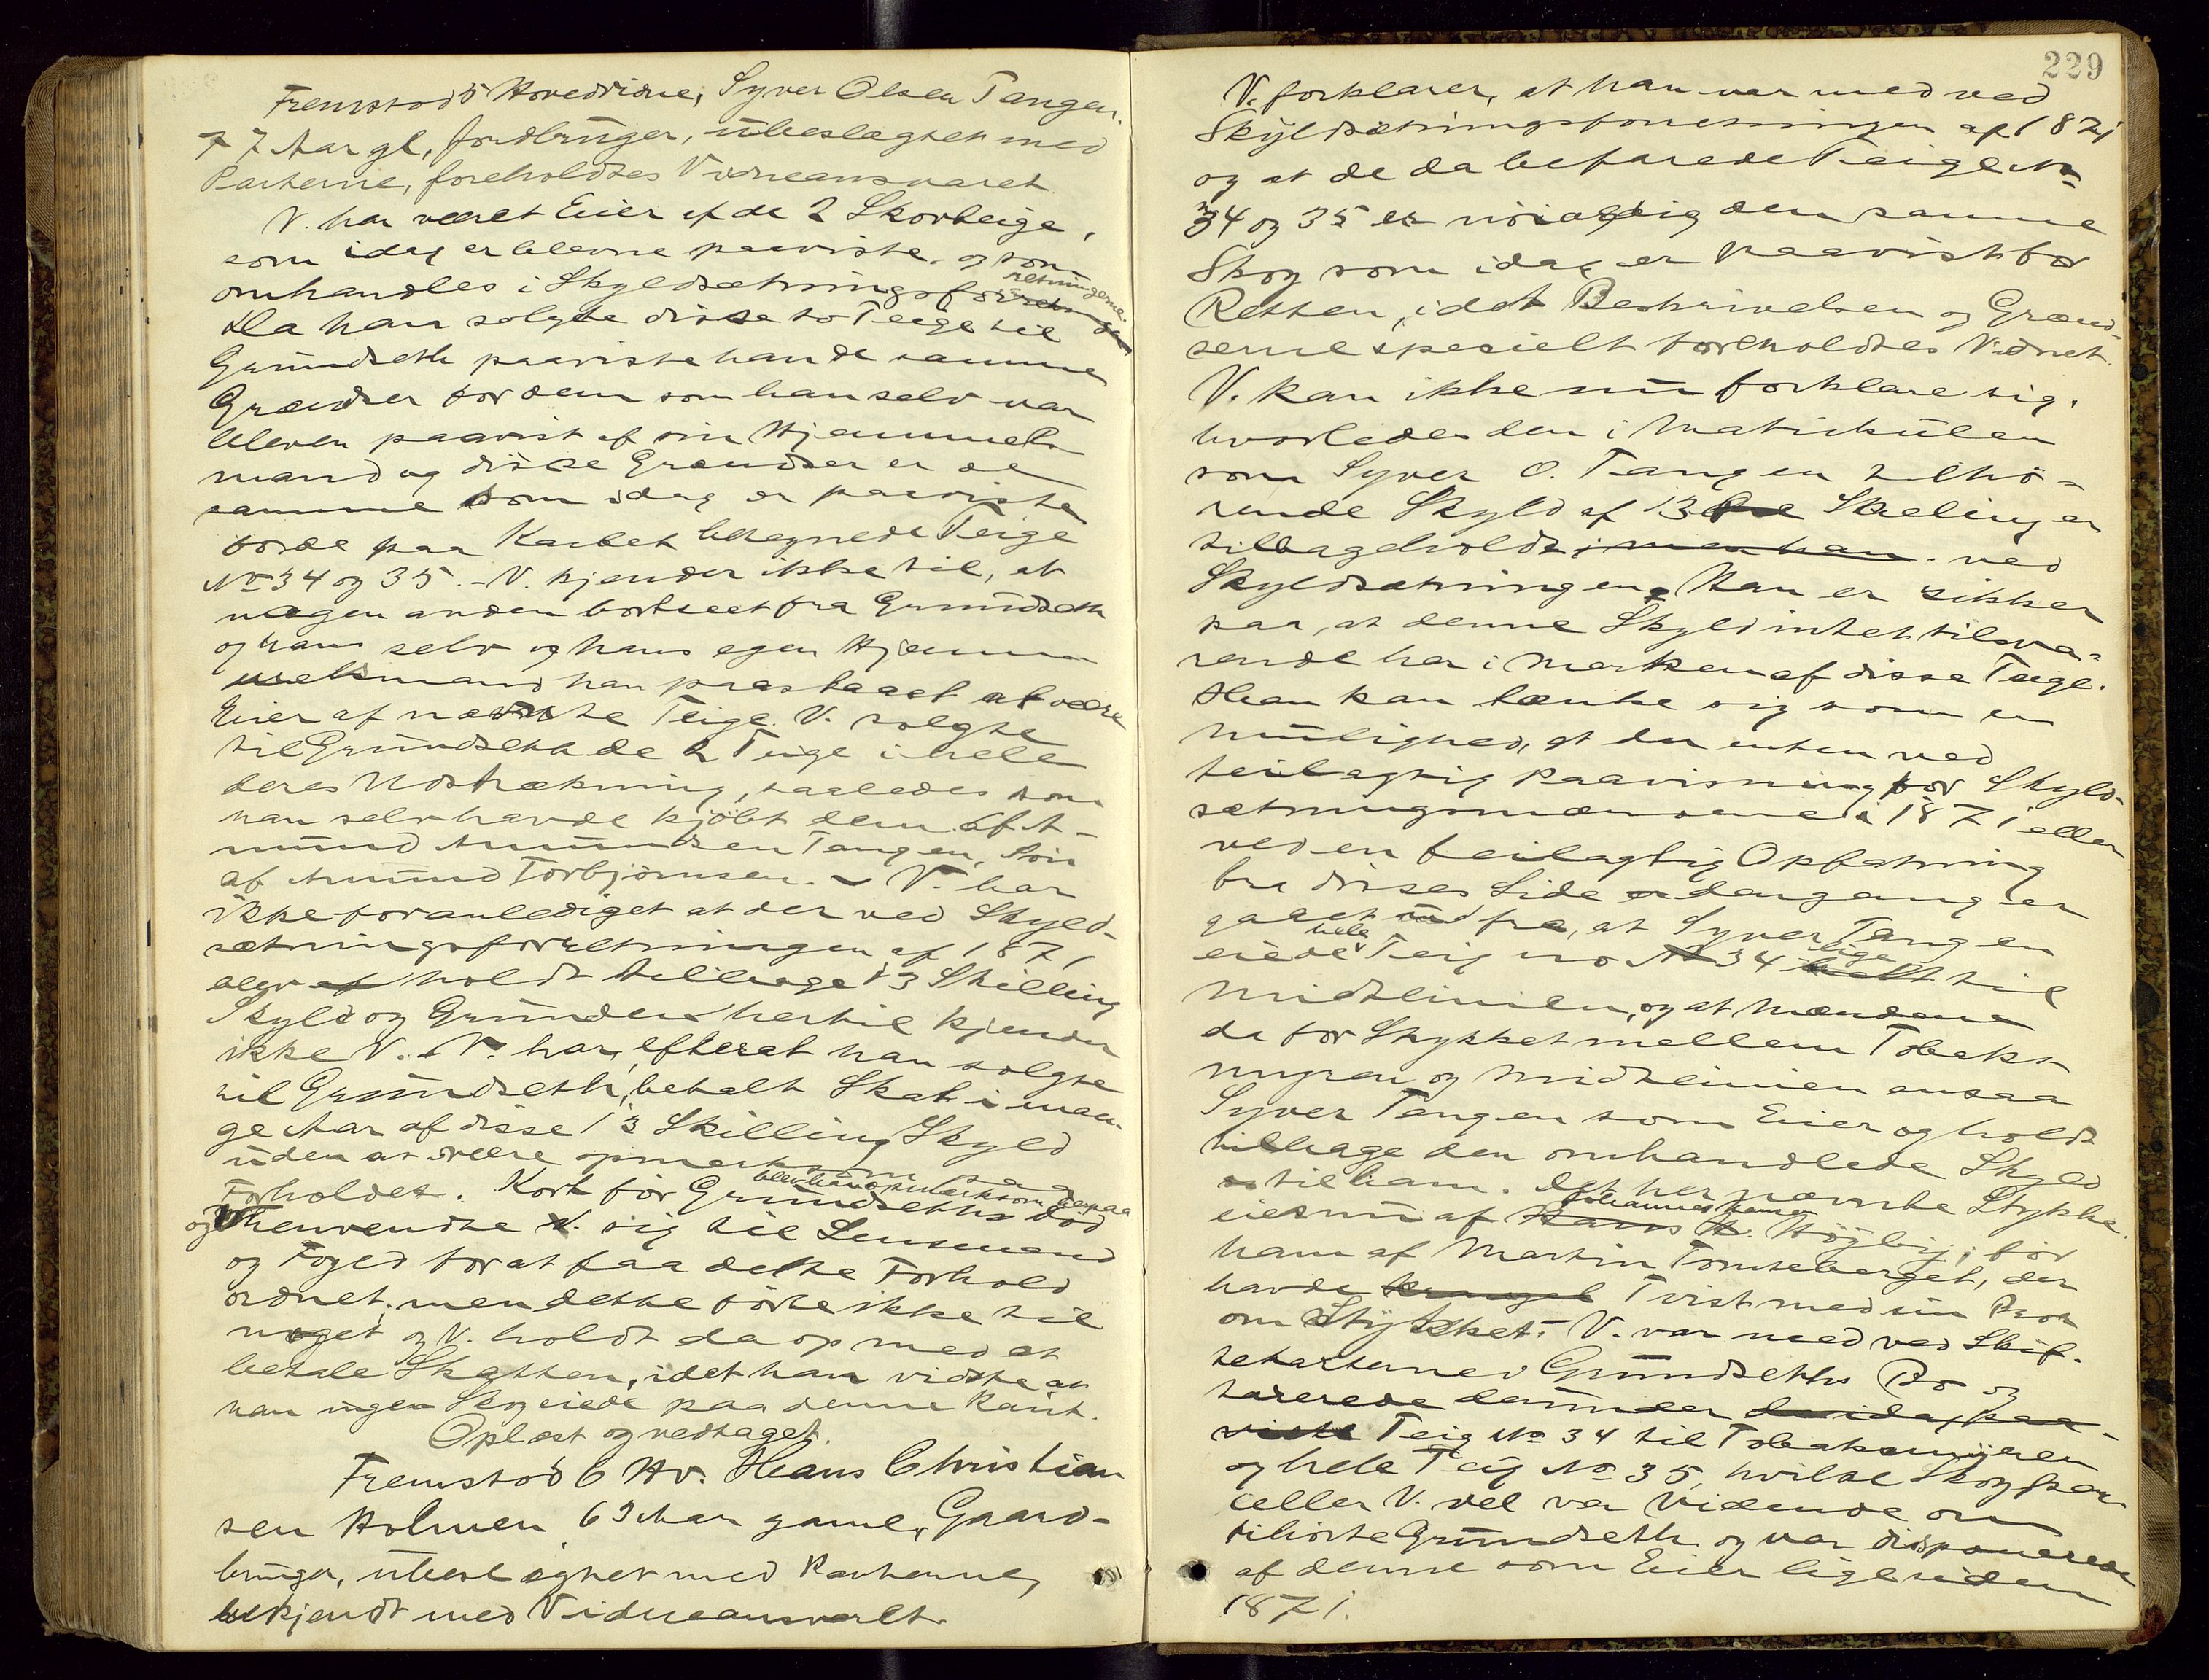 Fremstod 5 Hovedvidne, Syver Olsen Tangen,
77 Aar gl., fordbruger, ubeslægtet med
Parterne, foreholdtes Vidneansvaret
V. har været Eier af de 2 Skovteige,
som idag er blevne paaviste og som
omhandles i Skyldsætningsforretningerne.
Da han solgte disse to Teige til
Grundseth paaviste han de samme
Grændser for dem som han selv var
bleven paavist af sin Hjemmels
mand og disse Grændser er de
samme som idag er paaviste
for de paa Kartet betegnede Teige
No 34 og 35. - V. kjender ikke til, at
nogen anden bortseet fra Grundseth
og ham selv og hans egen Hjem-
melsmand har paastaaet at være
Eier af nævnte Teige. V. solgte
til Grundseth de 2 Teige i hele
deres Udstrækning, saaledes som
han selv havde kjøbt dem af A-
mund Amundsen Tangen, Søn
af Amund Torbjørnsen. - V. har
ikke foranlediget at der ved Skyld-
sætningsforretningen af 1871
blev holdt tilbage 13 Skilling
Skyld og Grunden hertil kjender
ikke V. - V. har, efterat han solgte
til Grundseth, betalt Skat i man-
ge Aar af disse 13 Skilling Skyld
uden at være opmerksom paa
Forholdet. Kort før Grundseths Død
blev han opmerksom derpaa
og henvendte sig til Lensmand
og Foged for at faa dette Forhold
ordnet, men dette førte ikke til
noget og V. holdt da op med at
betale Skatten, idet han vidste at
han ingen Skog eiede paa denne Kant.
Oplæst og vedtaget.
Fremstod 6 Hv. Hans Christian
sen Holmen 69 Aar gamel, Gaard-
bruger, ubeslægtet med Parterne,
bekjendt med Vidneansvaret.
229
V. forklarer, at han var med ved
Skyldsætningsforretningen af 1871
og at de da befarede Teige No
34 og 35 er nøiagtig den samme
Skog som idag er paavist for
Retten, idet Beskrivelsen og Grænd-
serne specielt foreholdtes Vidnet.
V. kan ikke nu forklare sig,
hvorledes den i Matrikulen
som Syver O. Tangen tilhø-
rende Skyld af 13 Skilling er
tilbageholdt ved
Skyldsætningen. Han er sikker
paa, at denne Skyld intet tilsva-
rende har i Marken af disse Teige.
Han kan tænke sig som en
mulighed, at der enten ved
feilagtig Paavisning for Skyld-
sætningsmændene i 1871 eller
ved en feilagtig Opfatning
fra disses Side dengang er
gaaet ud fra, at Syver Tangen
eiede hele Teig no 34 lige til
Midtlinien, og at Mændene
da for Stykket mellem Tobaks-
myren og Midtlinien ansaa
Syver Tangen som Eier og holdt
tilbage den omhandlede Skyld
til ham. Det her nævnte Stykke
eies nu af Johannes Hansen Høgbÿ, før
ham af Martin Tomteberget, der
havde Tvist med sin Bror
om Stykket. V. var med ved Skif-
tetaxterne i Grundseths Bo og
taxerede derunder
Teig No 34 til Tobaksmyren
og hele Teig No 35, hvilke Skogpar-
celler V. vel var vidende om
tilhørte Grundseth og var disponerede
af denne som Eier lige siden
1871.